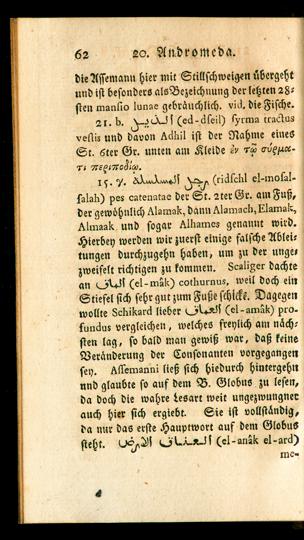 62 20. Andromeda.
die Assemann hier mit Stillschweigen übergeht
und ist besonders als Bezeichnung der letzten 28-
sten mansio lunae gebräuchlich. vid. die Fische.
21. b. الذيل (ed-dseil) syrma tractus
vestis und davon Adhil ist der Nahme eines
St. 6ter Gr. unten am Kleide ἐν τῷ σύρμα-
τι περιποδίῳ.
15. γ. رجل المسلسلة (ridschl el-mosal-
salah) pes catenatae der St. 2ter Gr. am Fuß,
der gewöhnlich Alamak, dann Alamach, Elamak,
Almaak und sogar Alhames genannt wird.
Hierbey werden wir zuerst einige falsche Ablei-
tungen durchzugehn haben, um zu der unge-
zweifelt richtigen zu kommen. Scaliger dachte
an الماق (el-mâk) cothurnus, weil doch ein
Stiefel sich sehr gut zum Fuße schickt. Dagegen
wollte Schikard lieber العماق (el-amâk) pro-
fundus vergleichen, welches freylich am näch-
sten lag, so bald man gewiß war, daß keine
Veränderung der Consonanten vorgegangen
sey. Assemanni ließ sich hiedurch hintergehn
und glaubte so auf dem B. Globus zu lesen,
da doch die wahre Lesart weit ungezwungner
auch hier sich ergiebt. Sie ist vollständig,
da nur das erste Hauptwort auf dem Globus
steht. العناق الارض (el-anâk el-ard)
me-